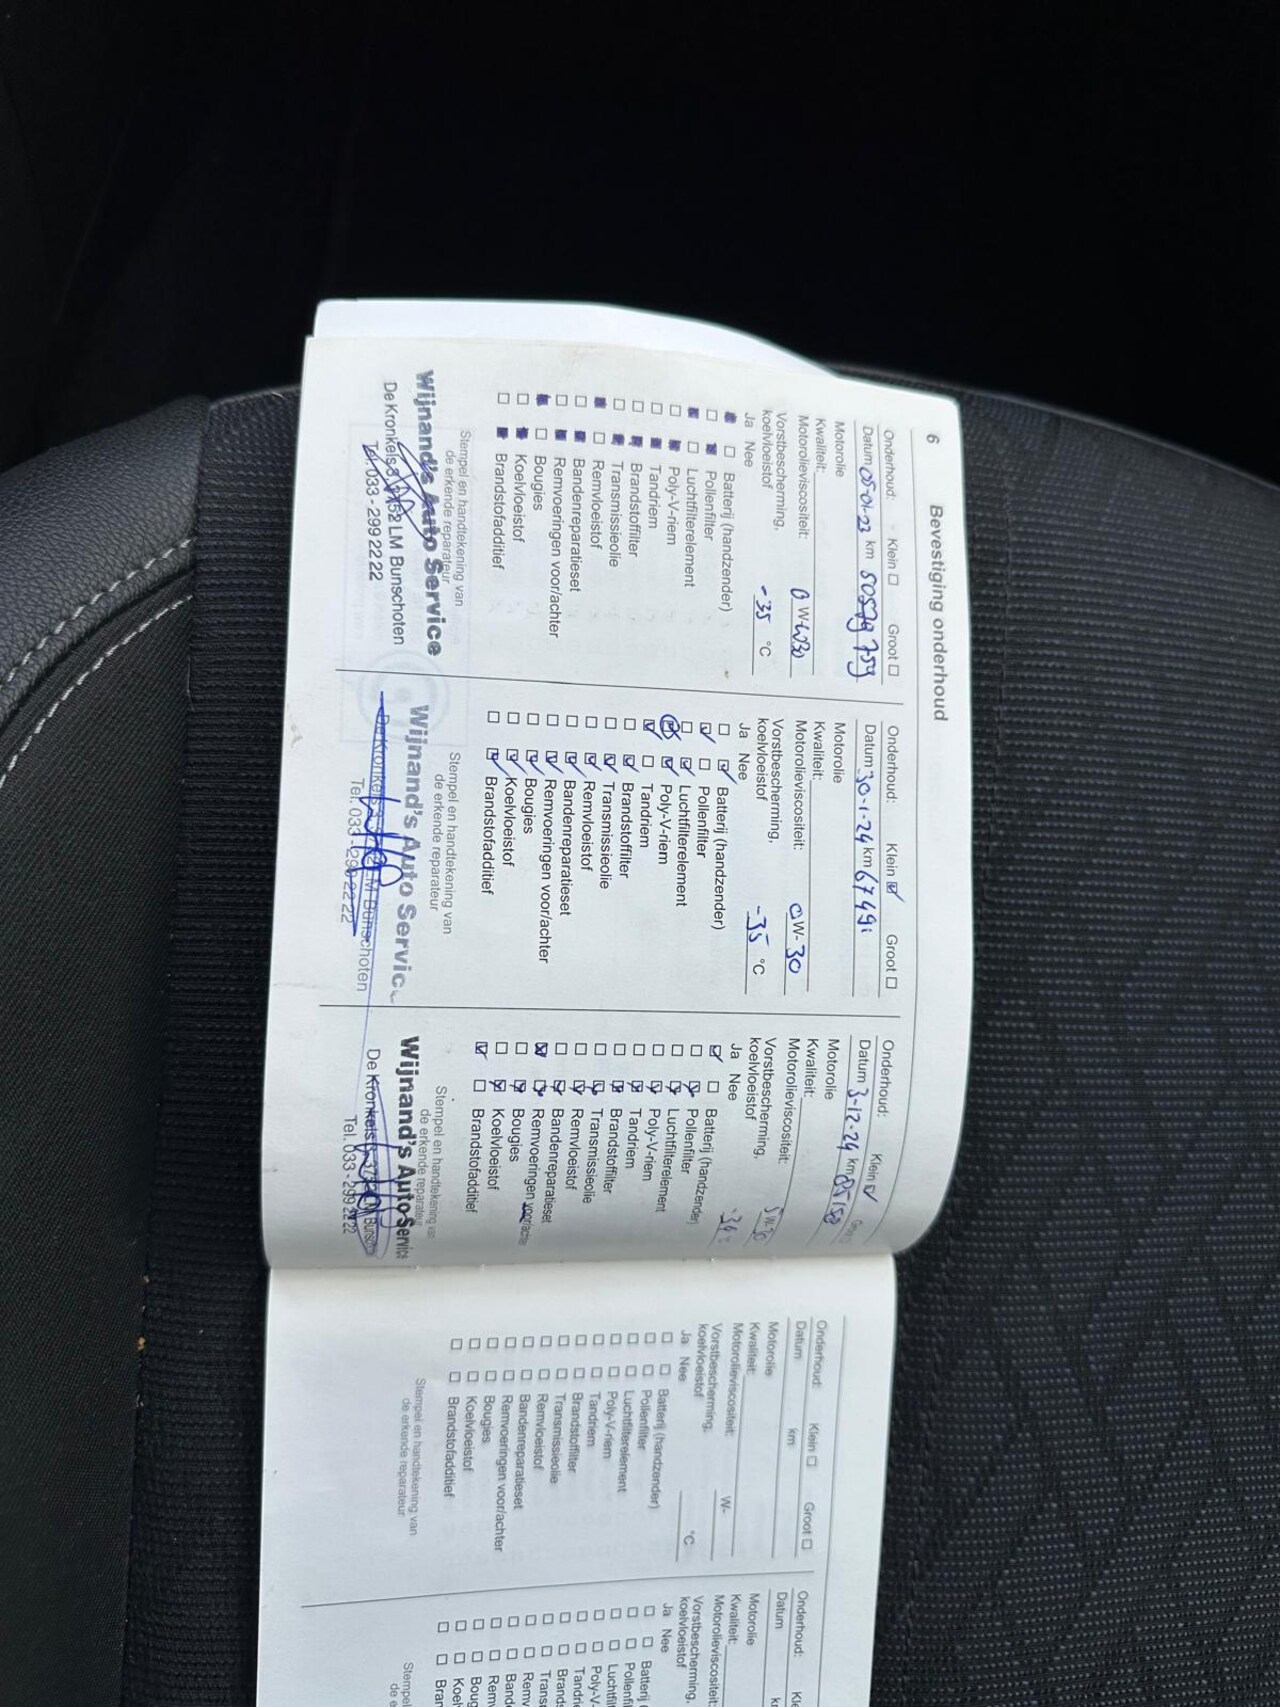 6 Bevestiging onderhoud
Onderhoud: Klein Groot
Datum 05-01-23 km
Motorolie
Kwaliteit:
Motorolieviscositeit: 0 W-W30
Vorstbescherming,
koelvloeistof -35 °C
Ja Nee
Batterij (handzender)
Pollenfilter
Luchtfilterelement
Poly-V-riem
Tandriem
Brandstoffilter
Transmissieolie
Remvloeistof
Bandenreparatieset
Remvoeringen voor/achter
Bougies
Koelvloeistof
Brandstofadditief
Stempel en handtekening van
de erkende reparateur
Wijnand's Auto Service
De Kronkels 3, 3752 LM Bunschoten
Tel. 033 - 299 22 22
Onderhoud: Klein Groot
Datum 30-1-24 km 67491
Motorolie
Kwaliteit:
Motorolieviscositeit: 0 W- 30
Vorstbescherming,
koelvloeistof -35 °C
Ja Nee
Batterij (handzender)
Pollenfilter
Luchtfilterelement
Poly-V-riem
Tandriem
Brandstoffilter
Transmissieolie
Remvloeistof
Bandenreparatieset
Remvoeringen voor/achter
Bougies
Koelvloeistof
Brandstofadditief
Stempel en handtekening van
de erkende reparateur
Wijnand's Auto Service
De Kronkels 3, 3752 LM Bunschoten
Tel. 033 - 299 22 22
Onderhoud: Klein
Datum 3-12-24 km 85150
Motorolie
Kwaliteit:
Motorolieviscositeit: 5 W-30
Vorstbescherming,
koelvloeistof -34
Ja Nee
Batterij (handzender)
Pollenfilter
Luchtfilterelement
Poly-V-riem
Tandriem
Brandstoffilter
Transmissieolie
Remvloeistof
Bandenreparatieset
Remvoeringen voor/achter
Bougies
Koelvloeistof
Brandstofadditief
Stempel en handtekening van
de erkende reparateur
Wijnand's Auto Servic
De Kronkels 3, 3752 LM Bunsch
Tel. 033 - 299 22 22
Onderhoud: Klein Groot
Datum km
Motorolie
Kwaliteit:
Motorolieviscositeit: W-
Vorstbescherming,
koelvloeistof °C
Ja Nee
Batterij (handzender)
Pollenfilter
Luchtfilterelement
Poly-V-riem
Tandriem
Brandstoffilter
Transmissieolie
Remvloeistof
Bandenreparatieset
Remvoeringen voor/achter
Bougies
Koelvloeistof
Brandstofadditief
Stempel en handtekening van
de erkende reparateur
Onderhoud: Kle
Datum k
Motorolie
Kwaliteit:
Motorolieviscositeit:
Vorstbescherming,
koelvloeistof
Ja Nee
Batterij (
Pollenfil
Luchtfi
Poly-V-
Tandri
Brands
Transm
Remv
Bande
Remv
Boug
Koelv
Bran
Stempel
de e